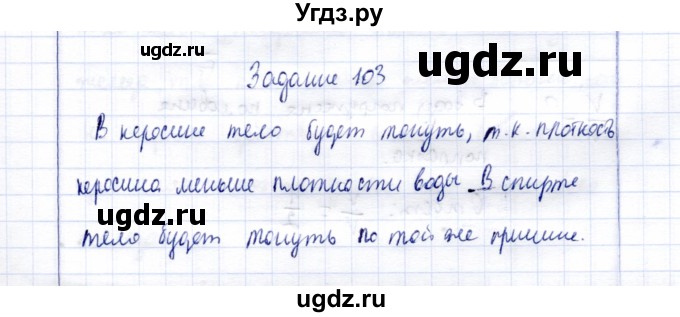 Угдз.ру
ugdz.ru
ugdz.ru
ugdz.ru
Задание 103
В керосине тело будет тонуть, т.к. плотность
керосина меньше плотности воды. В спирте
ugdz.ru
ugdz.ru
тело будет тонуть по той же причине.
ugdz.ru
ugdz.ru